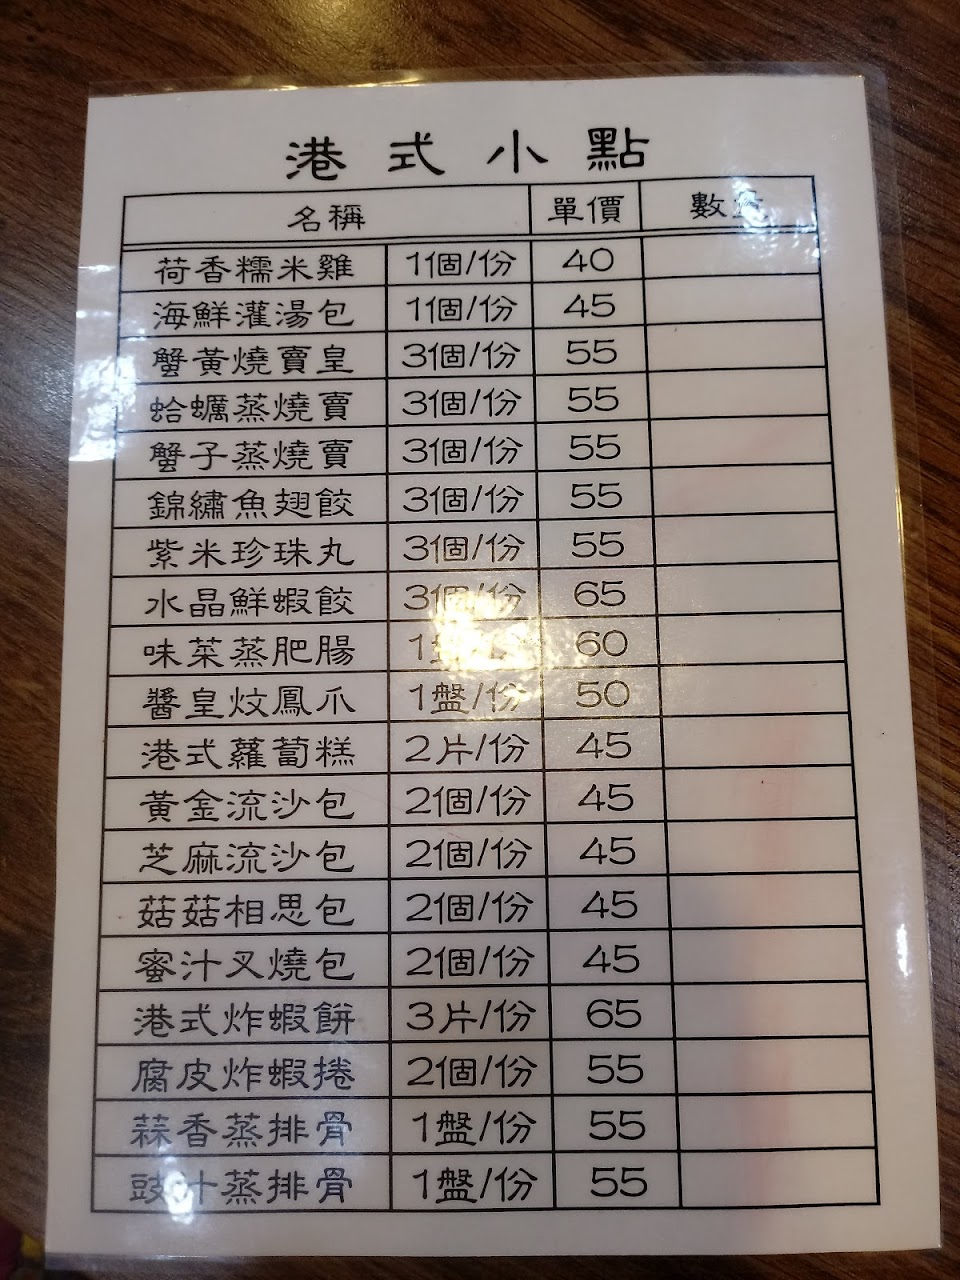 港式小點
名稱 單價 數量
荷香糯米雞 1個/份 40
海鮮灌湯包 1個/份 45
蟹黃燒賣皇 3個/份 55
蛤蠣蒸燒賣 3個/份 55
蟹子蒸燒賣 3個/份 55
錦繡魚翅餃 3個/份 55
紫米珍珠丸 3個/份 55
水晶鮮蝦餃 3個/份 65
味菜蒸肥腸 1 60
醬皇炆鳳爪 1盤/份 50
港式蘿蔔糕 2片/份 45
黃金流沙包 2個/份 45
芝麻流沙包 2個/份 45
菇菇相思包 2個/份 45
蜜汁叉燒包 2個/份 45
港式炸蝦餅 3片/份 65
腐皮炸蝦捲 2個/份 55
蒜香蒸排骨 1盤/份 55
豉汁蒸排骨 1盤/份 55